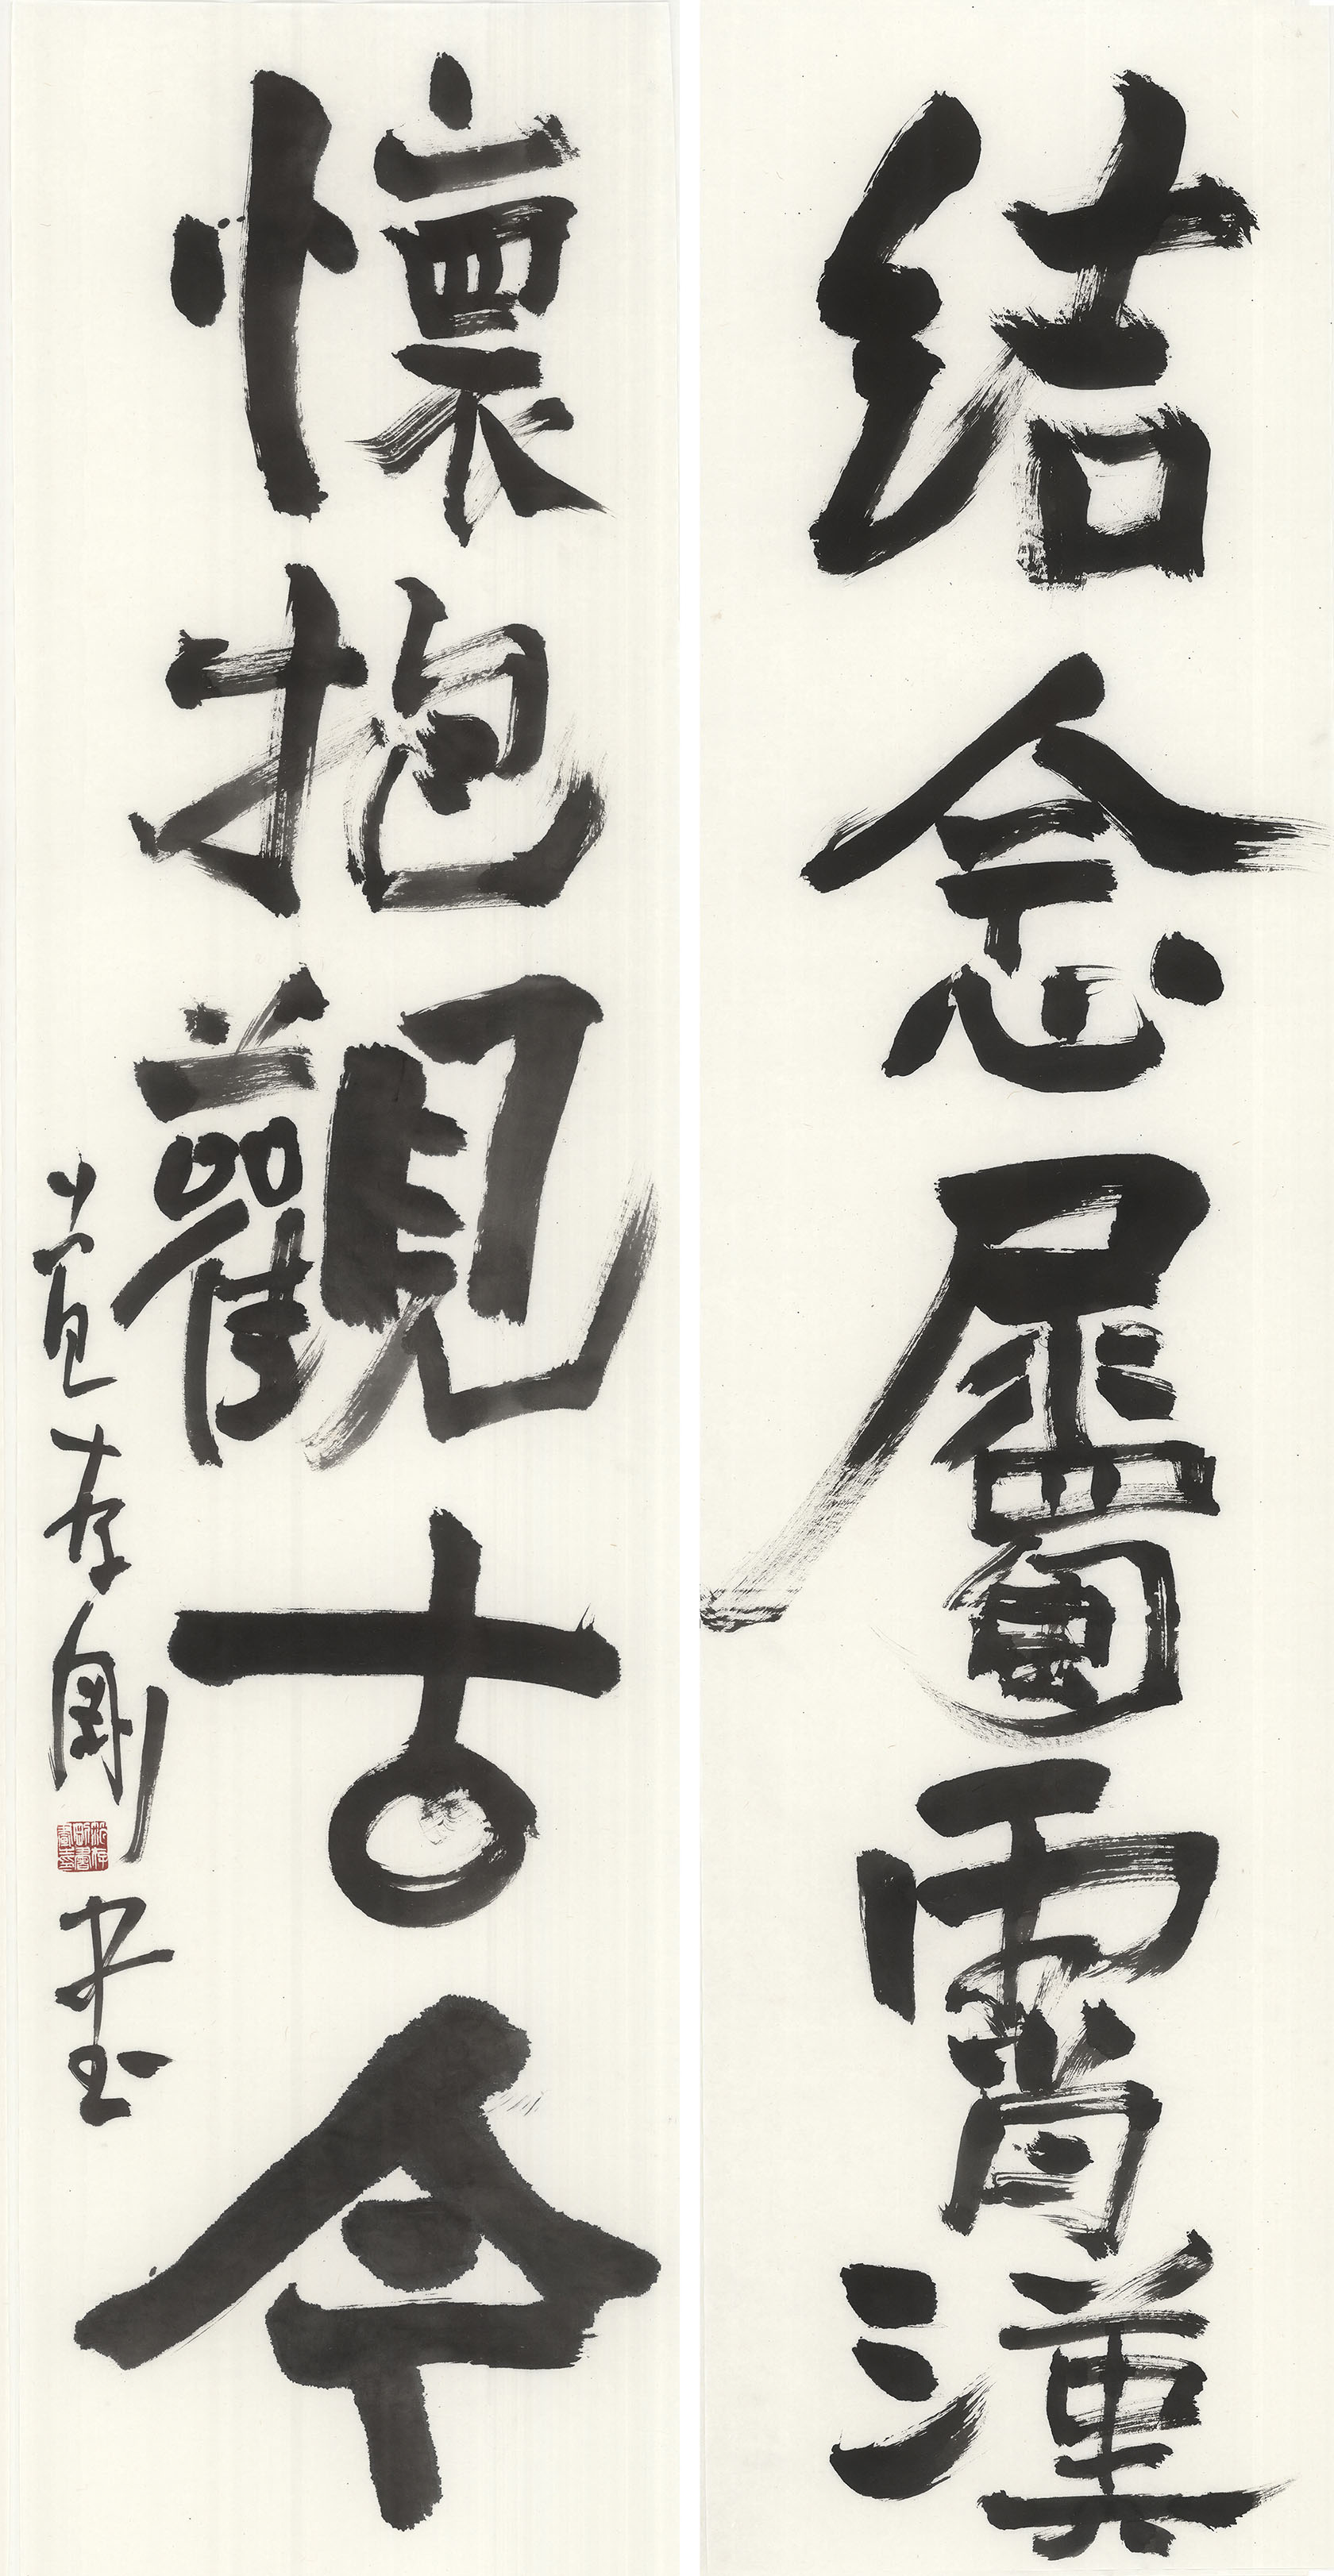 結念屬霄漢
懷抱觀古今
存剛書